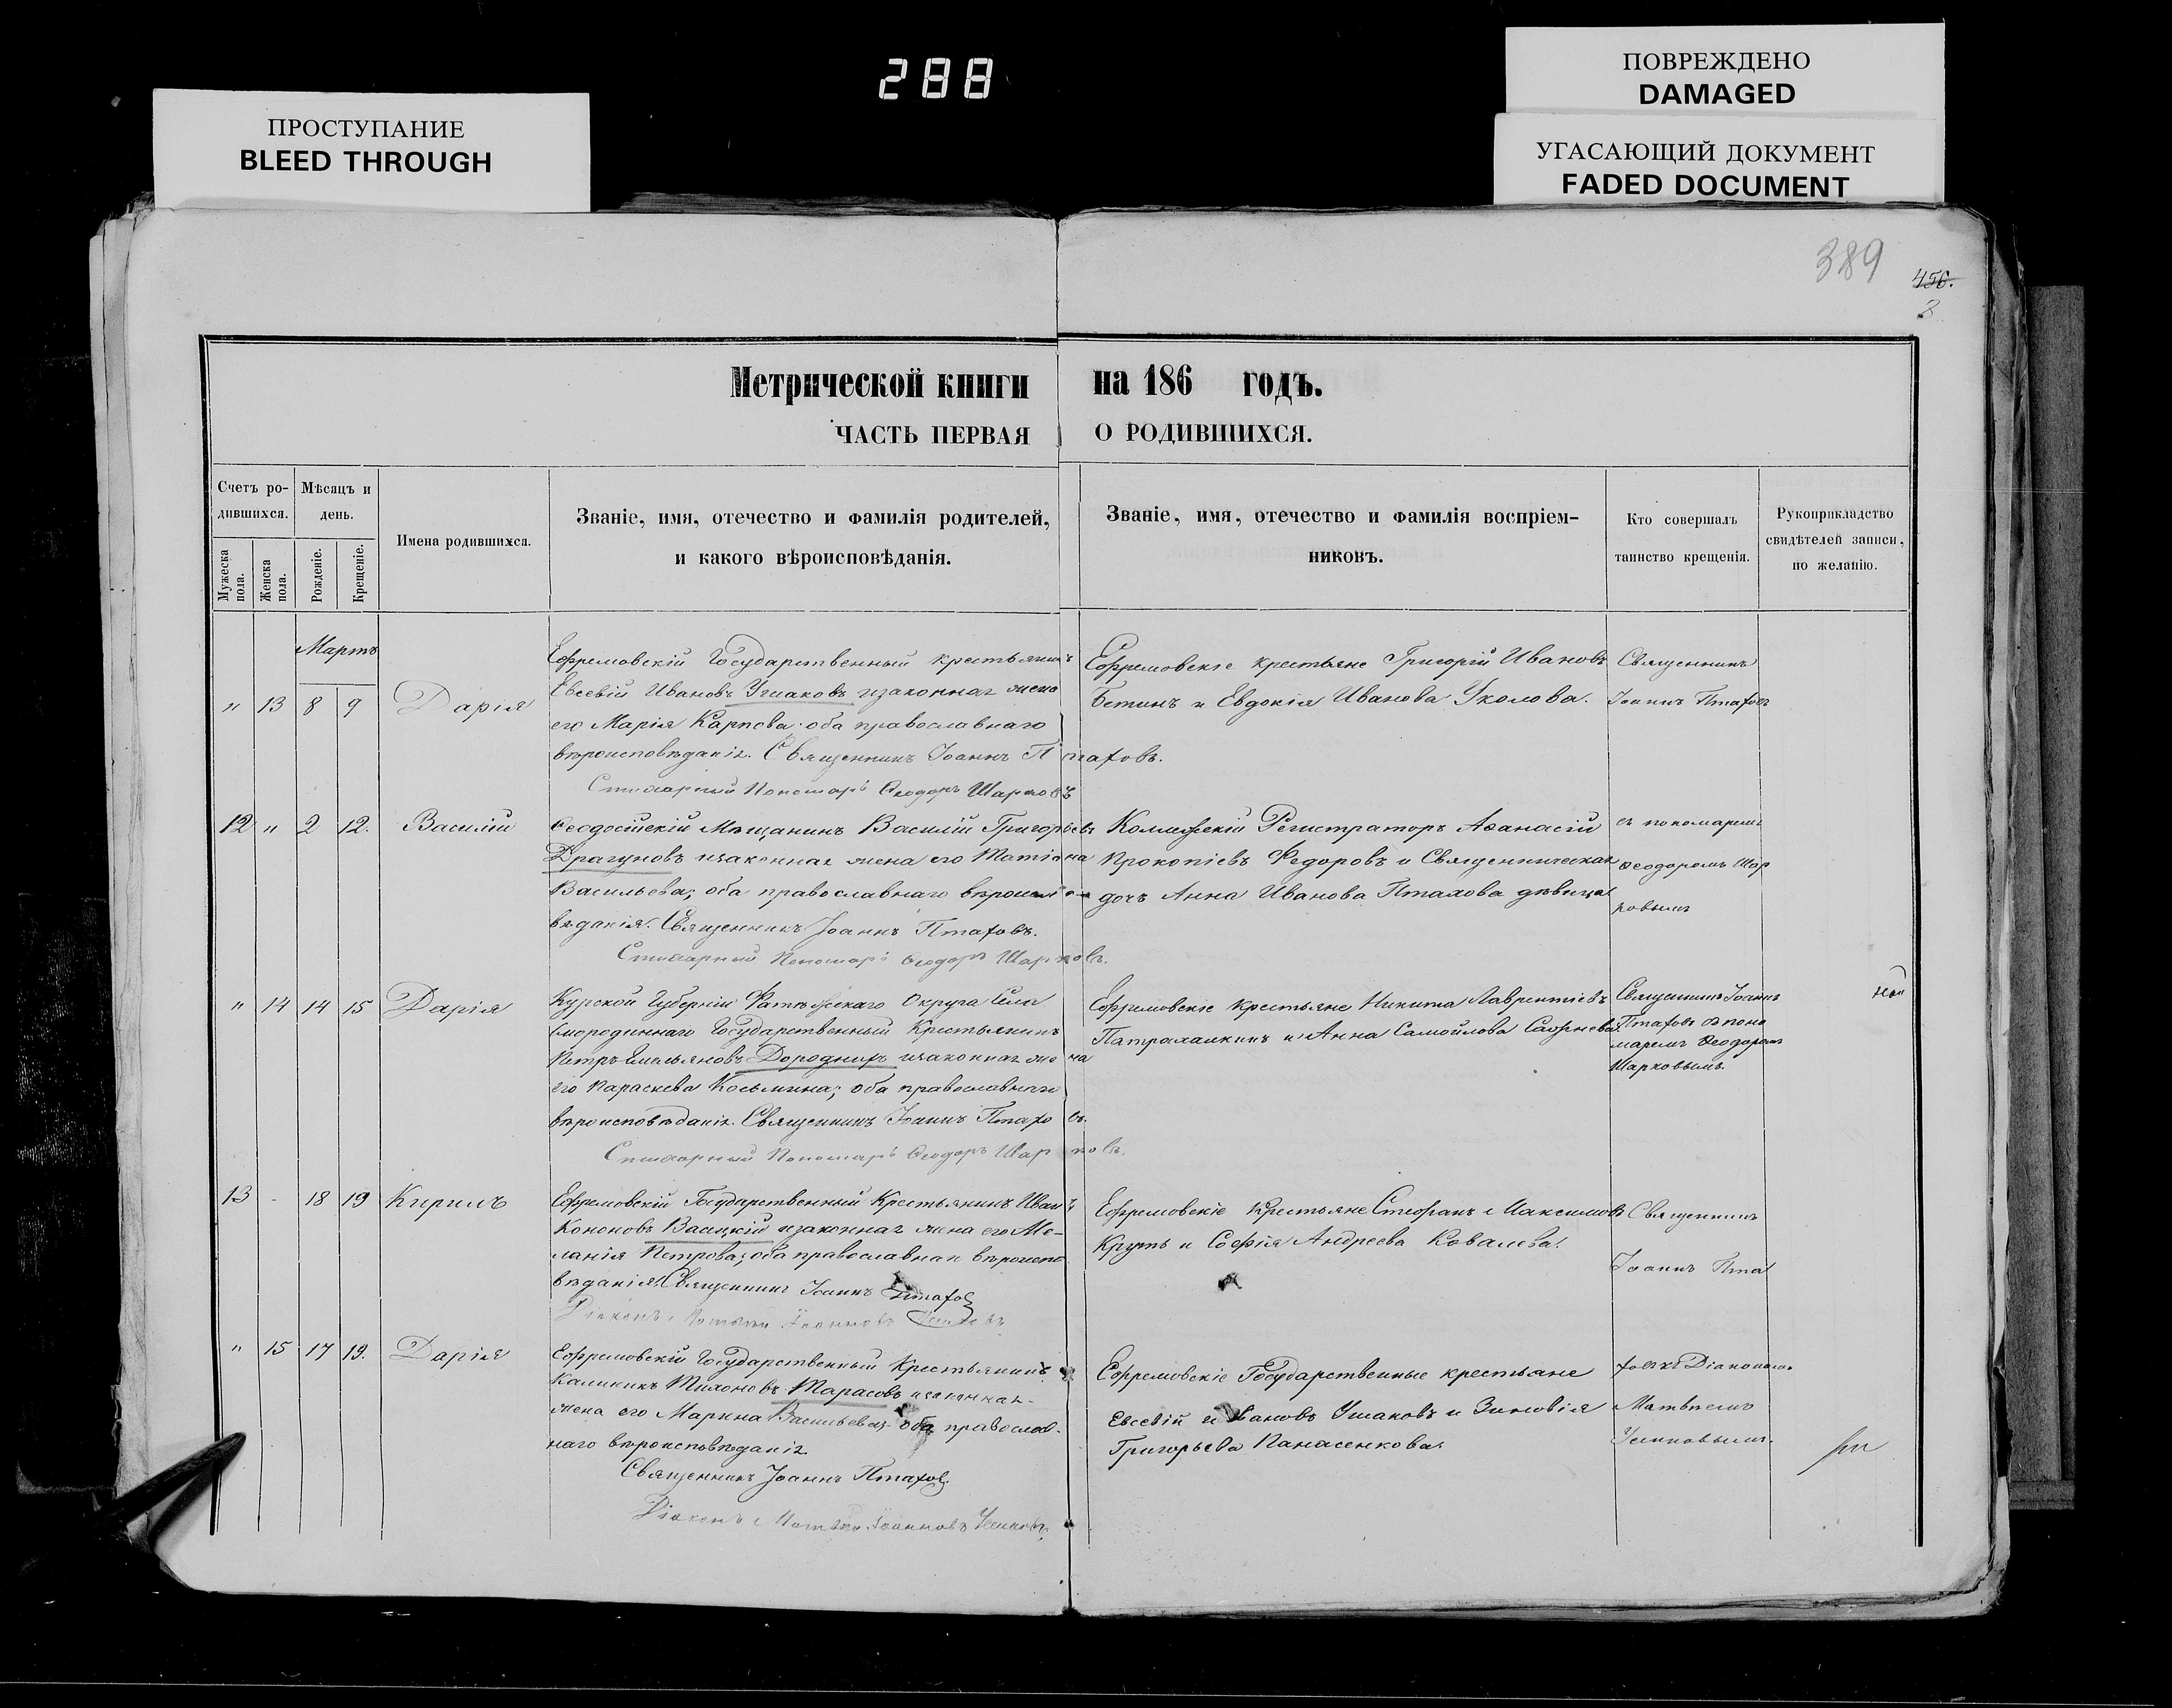 288
ПРОСТУПАНИЕ
BLEED THROUGH
ПОВРЕЖДЕНО
DAMAGED
УГАСАЮЩИЙ ДОКУМЕНТ
FADED DOCUMENT
389
456.
3
Метрической книги на 186 годъ.
ЧАСТЬ ПЕРВАЯ О РОДИВШИХСЯ.
Счетъ ро-
дившихся.
Мужеска
пола.
Женска
пола.
Мѣсяцъ и
день.
Рожденіе.
Крещеніе.
Имена родившихся.
Званіе, имя, отечество и фамилія родителей,
и какого вѣроисповѣданія.
Званіе, имя, отечество и фамилія воспріем-
никовъ.
Кто совершалъ
таинство крещенія.
Рукоприкладство
свидѣтелей записи,
по желанію.
Мартъ
" 13 8 9 Дарія
Ефремовскій Государственный крестьянинъ
Евсевій Ивановъ Ушаковъ изаконная жена
его Марія Карпова; оба православнаго
вѣроисповѣданія. Священникъ Іоаннъ Птаховъ.
Стихарный Пономарь Ѳеодоръ Шарковъ
Ефремовскіе крестьяне Григорій Ивановъ
Бетинъ и Евдокія Иванова Уколова.
Священникъ
Іоаннъ Птаховъ
12 " 2 12. Василій
Ѳеодосійскій Мѣщанинъ Василій Григорьевъ
Драгуновъ изаконная жена его Татіана
Васильева; оба православнаго вѣроиспо-
вѣданія. Священникъ Іоаннъ Птаховъ.
Стихарный Пономарь Ѳеодоръ Шарковъ.
Коллежскій Регистраторъ Аѳанасій
Прокопіевъ Федоровъ и Священническая
дочь Анна Иванова Птахова дѣвица.
съ пономаремъ
Ѳеодоромъ Шар
ковымъ
" 14 14 15 Дарія
Курской Губерніи Фатежскаго Округа Села
Смородиннаго Государственный Крестьянинъ
Петръ Емельяновъ Дородныхъ изаконная жена
его Параскева Косьмина; оба православнаго
вѣроисповѣданія. Священникъ Іоаннъ Птаховъ.
Стихарный Пономарь Ѳеодоръ Шарковъ.
Ефремовскіе крестьяне Никита Лаврентіевъ
Патрахалкинъ и Анна Самойлова
Священникъ Іоаннъ
Птаховъ съ поно
маремъ Ѳеодоромъ
Шарковымъ.
13 - 18 19 Кирилъ
Ефремовскій Государственный Крестьянинъ Иванъ
Кононовъ Васицкій изаконная жена его Ме-
ланія Петрова; оба православнаго вѣроиспо
вѣданія. Священникъ Іоаннъ Птаховъ
Діаконъ Матѳей Іоанновъ
Ефремовскіе Крестьяне Стефанъ Максимовъ
Круть и Софія Андреева Ковалева.
Священникъ
Іоаннъ Пта
" 15 17 19. Дарія
Ефремовскій Государственный Крестьянинъ
Калиникъ Тихоновъ Тарасовъ изаконная
жена его Марина Васильева; оба православ-
наго вѣроисповѣданія.
Священникъ Іоаннъ Птаховъ.
Діаконъ Матѳей Іоанновъ
Ефремовскіе Государственные крестьяне
Евсевій Ивановъ Ушаковъ и Зиновія
Григорьева Панасенкова.
ховъ съ Діакономъ
Матвѣемъ